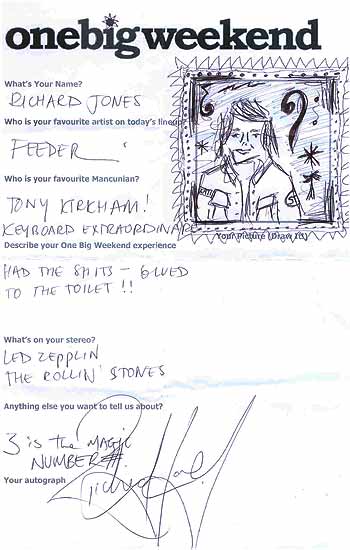 onebigweekend
What's Your Name?
RICHARD JONES
Who is your favourite artist on today's lineup
FEEDER
Who is your favourite Mancunian?
TONY KIRKHAM!
KEYBOARD EXTRAORDINAIRE
Your Picture (Draw it!)
Describe your One Big Weekend experience
HAD THE SHITS – GLUED
TO THE TOILET !!
What's on your stereo?
LED ZEPPLIN
THE ROLLIN' STONES
Anything else you want to tell us about?
3 is the MAGIC
NUMBER
Your autograph